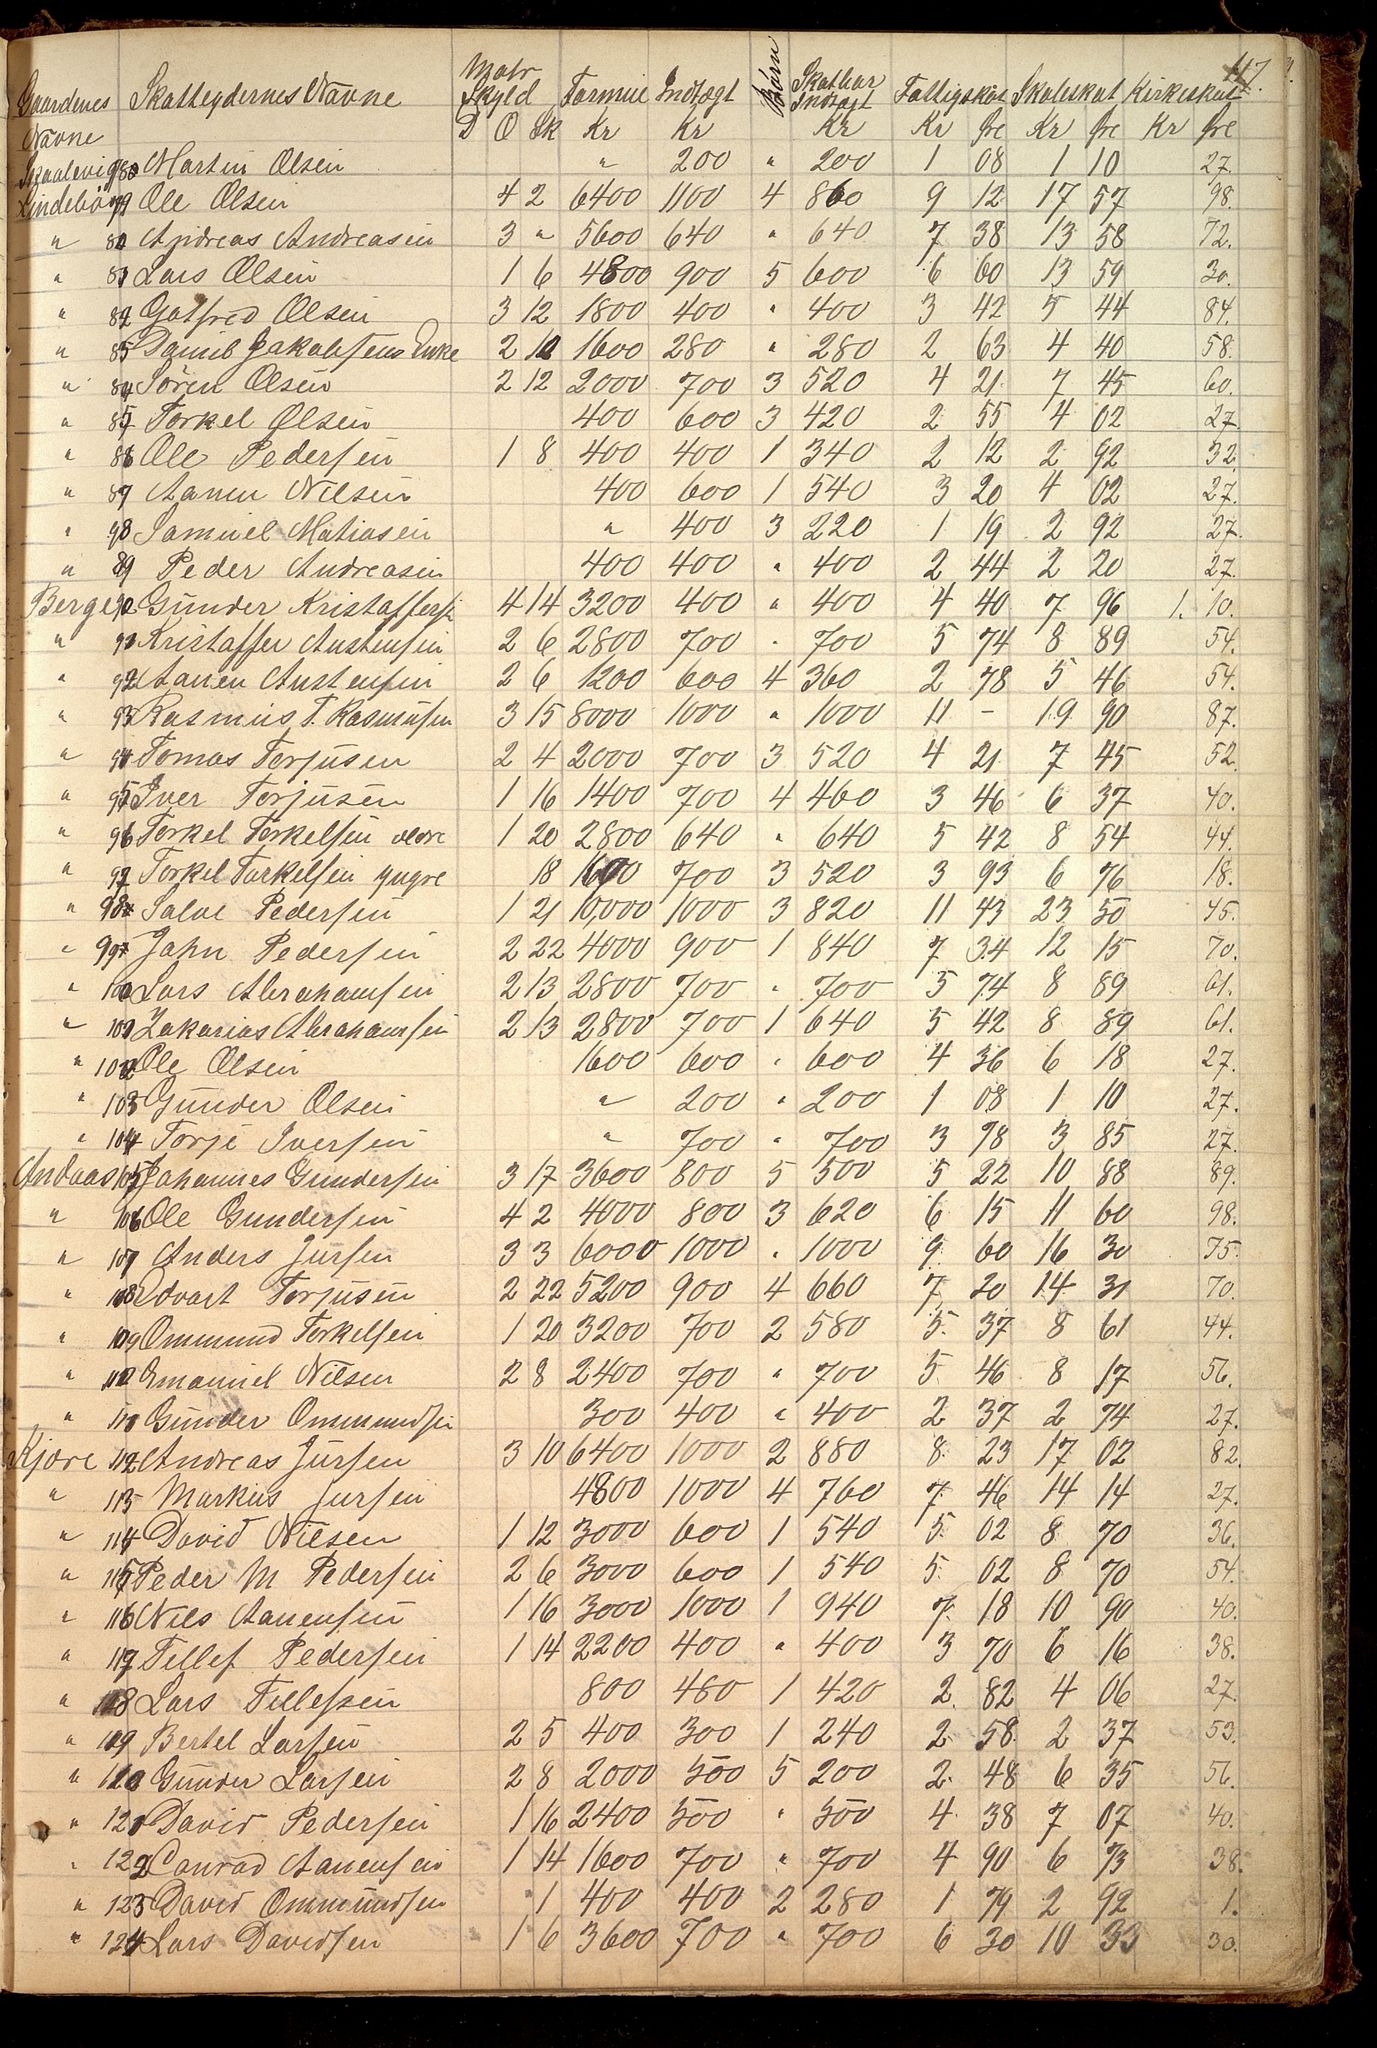 117.
Gaardenes Skatteydernes Navne Matr Skyld Formue Indtægt Børn Skatbar Indtægt Fattigskat Skoleskat Kirkeskat
Navne D O Sk Kr Kr Kr Kr Øre Kr Øre Kr Øre
Martin Olsen " 200 " 200 1 08 1 10 27.
79 Ole Olsen 4 2 6400 1100 4 860 9 12 17 57 98.
" 80 Andreas Andreasen 3 " 5600 640 " 640 7 38 13 58 72.
" 81 Lars Olsen 1 6 4800 900 5 600 6 60 13 59 30.
" 82 Gotfred Olsen 3 12 1800 400 " 400 3 42 5 44 84.
" 83 Jakobsens Enke 2 10 1600 280 " 280 2 63 4 40 58.
" 84 Sören Olsen 2 12 2000 700 3 520 4 21 7 45 60.
" 85 Torkel Olsen 400 600 3 420 2 55 4 02 27.
" 86 Ole Pedersen 1 8 400 400 1 340 2 12 2 92 32.
" 87 Aanen Nilsen 400 600 1 540 3 20 4 02 27.
" 98 Samuel Matiasen " 400 3 220 1 19 2 92 27.
" 89 Peder Andreasen 400 400 " 400 2 44 2 20 27.
Berge 90 Gunder Kristoffersen 4 14 3200 400 " 400 4 40 7 96 1. 10.
" 91 Kristoffer Austensen 2 6 2800 700 " 700 5 74 8 89 54.
" 92 Aanen Austensen 2 6 1200 600 4 360 2 78 5 46 54.
" 93 Rasmus T. Rasmusen 3 15 8000 1000 " 1000 11 – 19 90 87.
" 94 Tomas Terjusen 2 4 2000 700 3 520 4 21 7 45 52.
" 95 Iver Terjusen 1 16 1400 700 4 460 3 46 6 37 40.
" 96 Torkel Torkelsen eldre 1 20 2800 640 " 640 5 42 8 54 44.
" 97 Torkel Torkelsen yngre 18 1600 700 3 520 3 93 6 76 18.
" 98 Salve Pedersen 1 21 10,000 1000 3 820 11 43 23 50 45.
" 99 John Pedersen 2 22 4000 900 1 840 7 34 12 15 70.
" 100 Lars Abrahamsen 2 13 2800 700 " 700 5 74 8 89 61.
" 101 Zakarias Abrahamsen 2 13 2800 700 1 640 5 42 8 89 61.
" 102 Ole Olsen 1600 600 " 600 4 36 6 18 27.
" 103 Gunder Olsen " 200 " 200 1 08 1 10 27.
" 104 Torje Iversen " 700 " 700 3 78 3 85 27.
Andaas 105 Johannes Gundersen 3 17 3600 800 5 500 5 22 10 88 89.
" 106 Ole Gundersen 4 2 4000 800 3 620 6 15 11 60 98.
" 107 Anders Jursen 3 3 6000 1000 " 1000 9 60 16 30 75.
" 108 Edvart Terjusen 2 22 5200 900 4 660 7 20 14 31 70.
" 109 Ommund Torkelsen 1 20 3200 700 2 580 5 37 8 61 44.
" 110 Emanuel Nilsen 2 8 2400 700 " 700 5 46 8 17 56.
" 111 Gunder Ommundsen 300 400 " 400 2 37 2 74 27.
Kjøre 112 Andreas Jursen 3 10 6400 1000 2 880 8 23 17 02 82.
" 113 Markus Jursen 4800 1000 4 760 7 46 14 14 27.
" 114 David Nilsen 1 12 3000 600 1 540 5 02 8 70 36.
" 115 Peder M Pedersen 2 6 3000 600 1 540 5 02 8 70 54.
" 116 Nils Aanensen 1 16 3000 1000 1 940 7 18 10 90 40.
" 117 Tellef Pedersen 1 14 2200 400 " 400 3 70 6 16 38.
" 118 Lars Tellefsen 800 480 1 420 2 82 4 06 27.
" 119 Bertel Larsen 2 5 400 300 1 240 2 58 2 37 53.
" 120 Gunder Larsen 2 8 2000 500 5 200 2 48 6 35 56.
" 121 David Pedersen 1 16 2400 500 " 500 4 38 7 07 40.
" 122 Conrad Aanensen 1 14 1600 700 " 700 4 90 6 73 38.
" 123 David Ommundsen 1 400 400 2 280 1 79 2 92 1.
" 124 Lars Davidsen 1 6 3600 700 " 700 6 30 10 33 30.